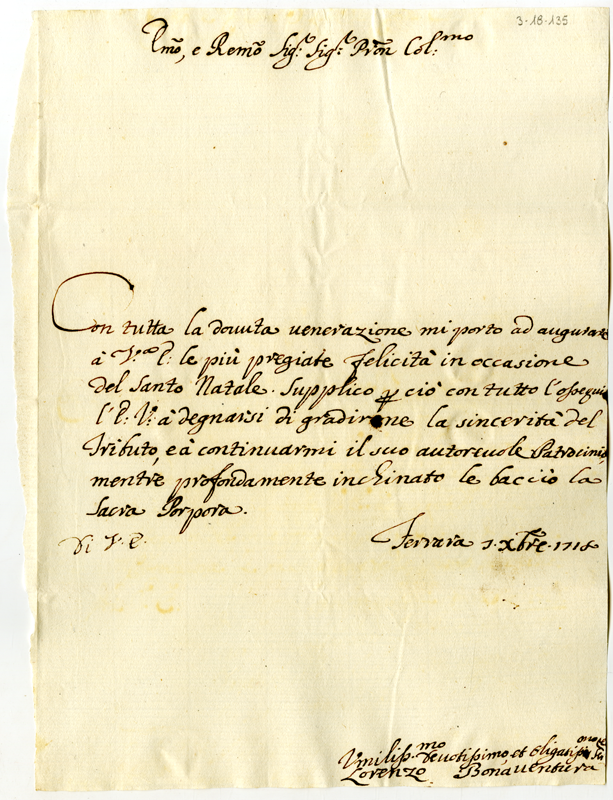 3-18-135
Emõ, e Remõ Sig.r Sig.r Prõn Col:mo
Con tutta la douuta uenerazione mi porto ad augurare
à V.ra E: le più pregiate felicità in occasione
del Santo Natale. Supplico per ciò con tutto l'ossequio
l'E: V: à degnarsi di gradirne la sincerità del
Tributo, e à continuarmi il suo autoreuole Patrocinio
mentre profondamente inchinato le baccio la
Sacra Porpora.
Di V. E.
Ferrara Xbre. 1718
Vmiliss.mo Deuotissimo, et Obligatiss.mo
Lorenzo Bonauentura